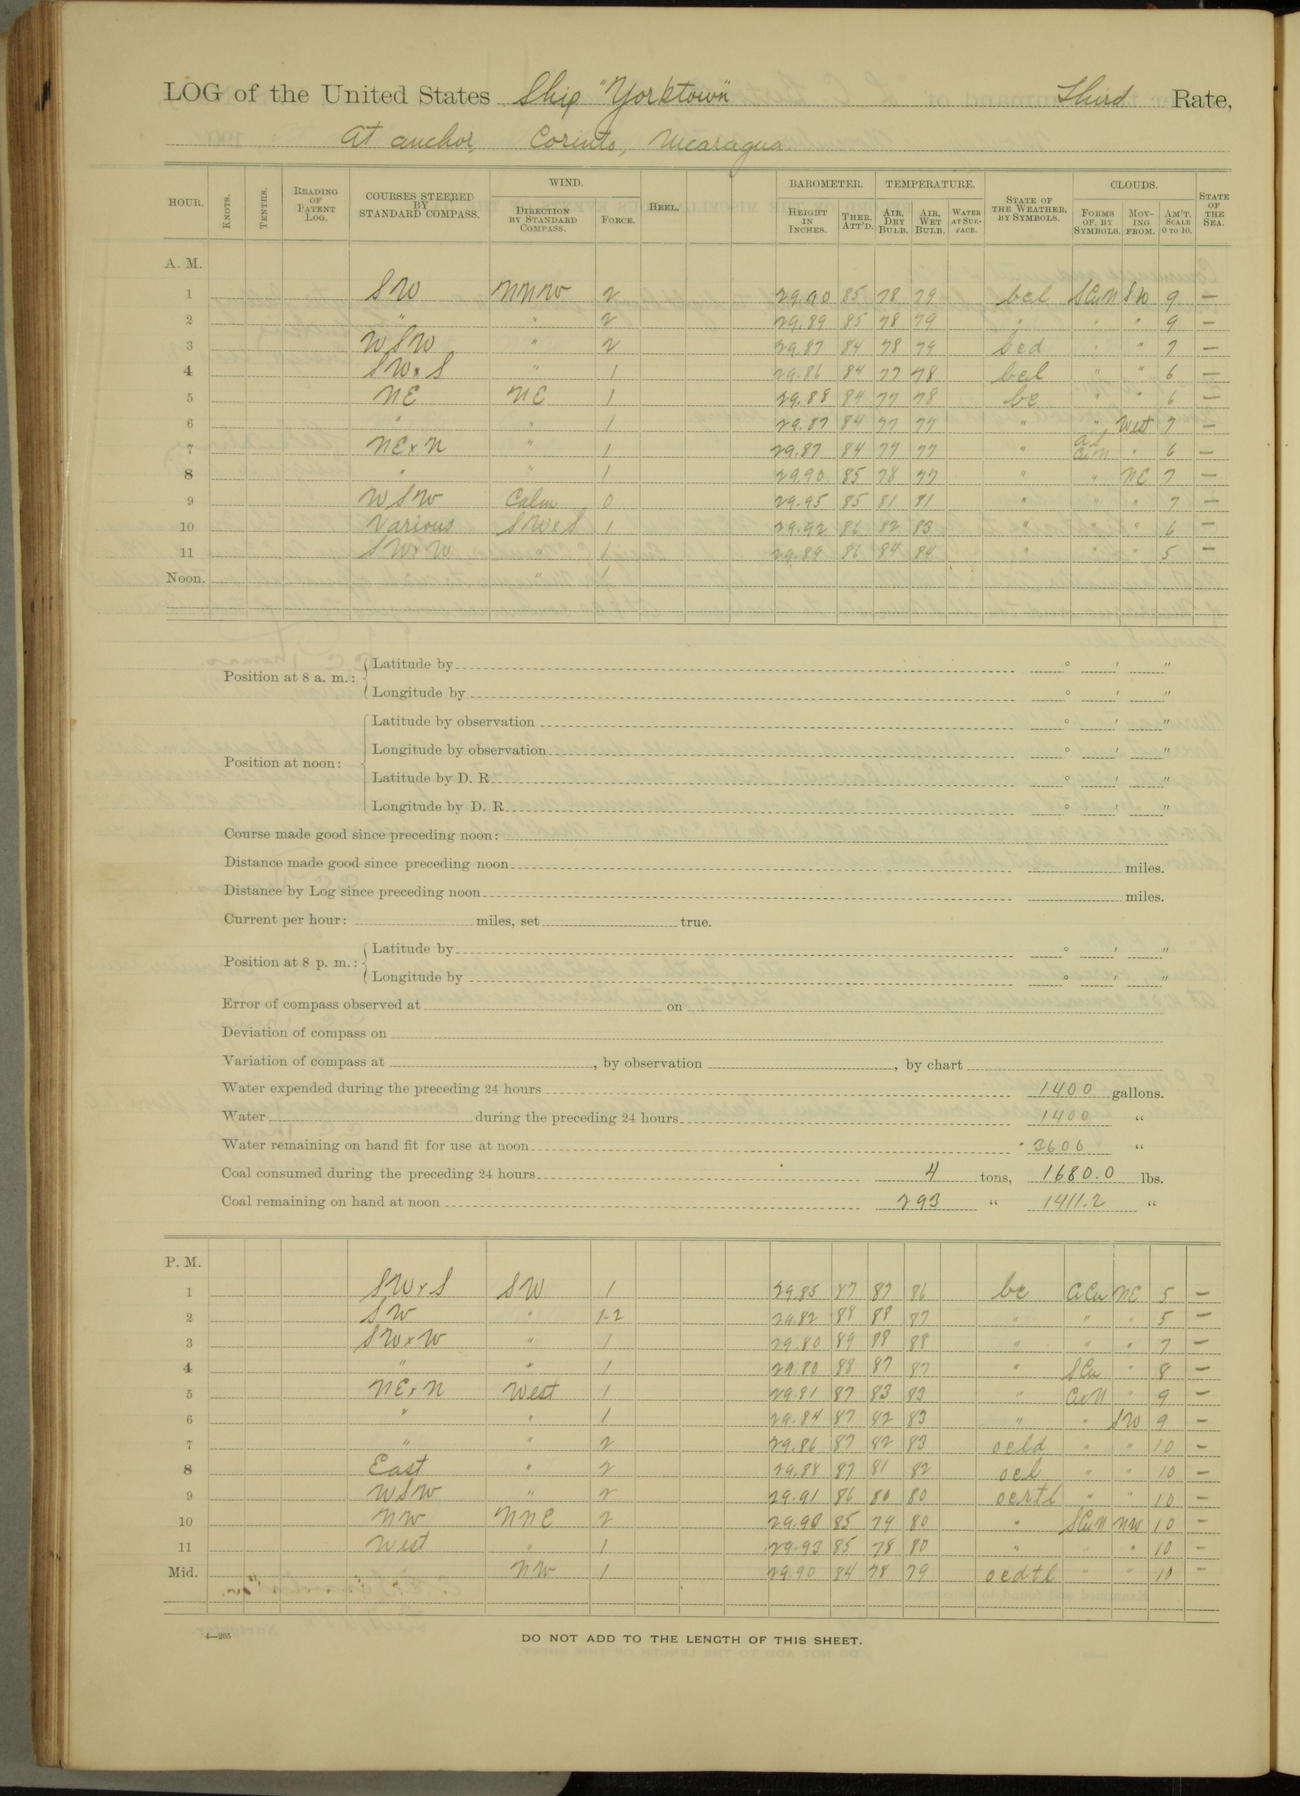 LOG of the United States Ship "Yorktown" Third Rate,
At anchor, Corinto, Nicaragua
HOUR. KNOTS. TENTHS. READING OF PATENT LOG. COURSES STEERED BY STANDARD COMPASS. WIND. DIRECTION BY STANDARD COMPASS. FORCE. HEEL. BAROMETER. HEIGHT IN INCHES. THER. ATT'D. TEMPERATURE. AIR, DRY BULB. AIR, WET BULB. WATER AT SURFACE. STATE OF THE WEATHER, BY SYMBOLS. CLOUDS. FORMS OF, BY SYMBOLS. MOVING FROM. AM'T. SCALE 0 TO 10. STATE OF THE SEA.
A. M.
1 SW NNW 2 29.90 85 78 79 bcl SCuN SW 9 —
2 " " 2 29.89 85 78 79 " " " 9 —
3 WSW " 2 29.87 84 78 79 bcd " " 7 —
4 SWxS " 1 29.86 84 77 78 bcl " " 6 —
5 NE NE 1 29.88 84 77 78 bc " " 6 —
6 " " 1 29.87 84 77 77 " " West 7 —
7 NExN " 1 29.87 84 77 77 " CuN " 6 —
8 " " 1 29.90 85 78 77 " " NE 7 —
9 WSW Calm 0 29.95 85 81 81 " " " 7 —
10 Various SWxS 1 29.92 86 82 83 " " " 6 —
11 SWxW " 1 29.89 86 84 84 " " " 5 —
Noon. " 1
Position at 8 a. m.: Latitude by ° ' "
Longitude by ° ' "
Position at noon: Latitude by observation ° ' "
Longitude by observation ° ' "
Latitude by D. R. ° ' "
Longitude by D. R. ° ' "
Course made good since preceding noon:
Distance made good since preceding noon miles.
Distance by Log since preceding noon miles.
Current per hour: miles, set true.
Position at 8 p. m.: Latitude by ° ' "
Longitude by ° ' "
Error of compass observed at on
Deviation of compass on
Variation of compass at , by observation , by chart
Water expended during the preceding 24 hours 1400 gallons.
Water during the preceding 24 hours 1400 "
Water remaining on hand fit for use at noon 3606 "
Coal consumed during the preceding 24 hours 4 tons, 1680.0 lbs.
Coal remaining on hand at noon 293 " 1411.2 "
P. M.
1 SWxS SW 1 29.85 87 87 86 bc ACu NE 5 —
2 SW " 1-2 29.82 88 88 87 " " " 5 —
3 SWxW " 1 29.80 89 88 88 " " " 7 —
4 " " 1 29.80 88 87 87 " SCu " 8 —
5 NExN West 1 29.81 87 83 83 " CuN " 9 —
6 " " 1 29.84 87 82 83 " " SW 9 —
7 " " 2 29.86 87 82 83 ocld " " 10 —
8 East " 2 29.88 87 81 82 ocl " " 10 —
9 WSW " 2 29.91 86 80 80 ocrtl " " 10 —
10 NW NNE 2 29.90 85 79 80 " SCuN NW 10 —
11 West " 1 29.93 85 78 80 " " " 10 —
Mid. " NW 1 29.90 84 78 79 ocdtl " " 10 —
4—265
DO NOT ADD TO THE LENGTH OF THIS SHEET.